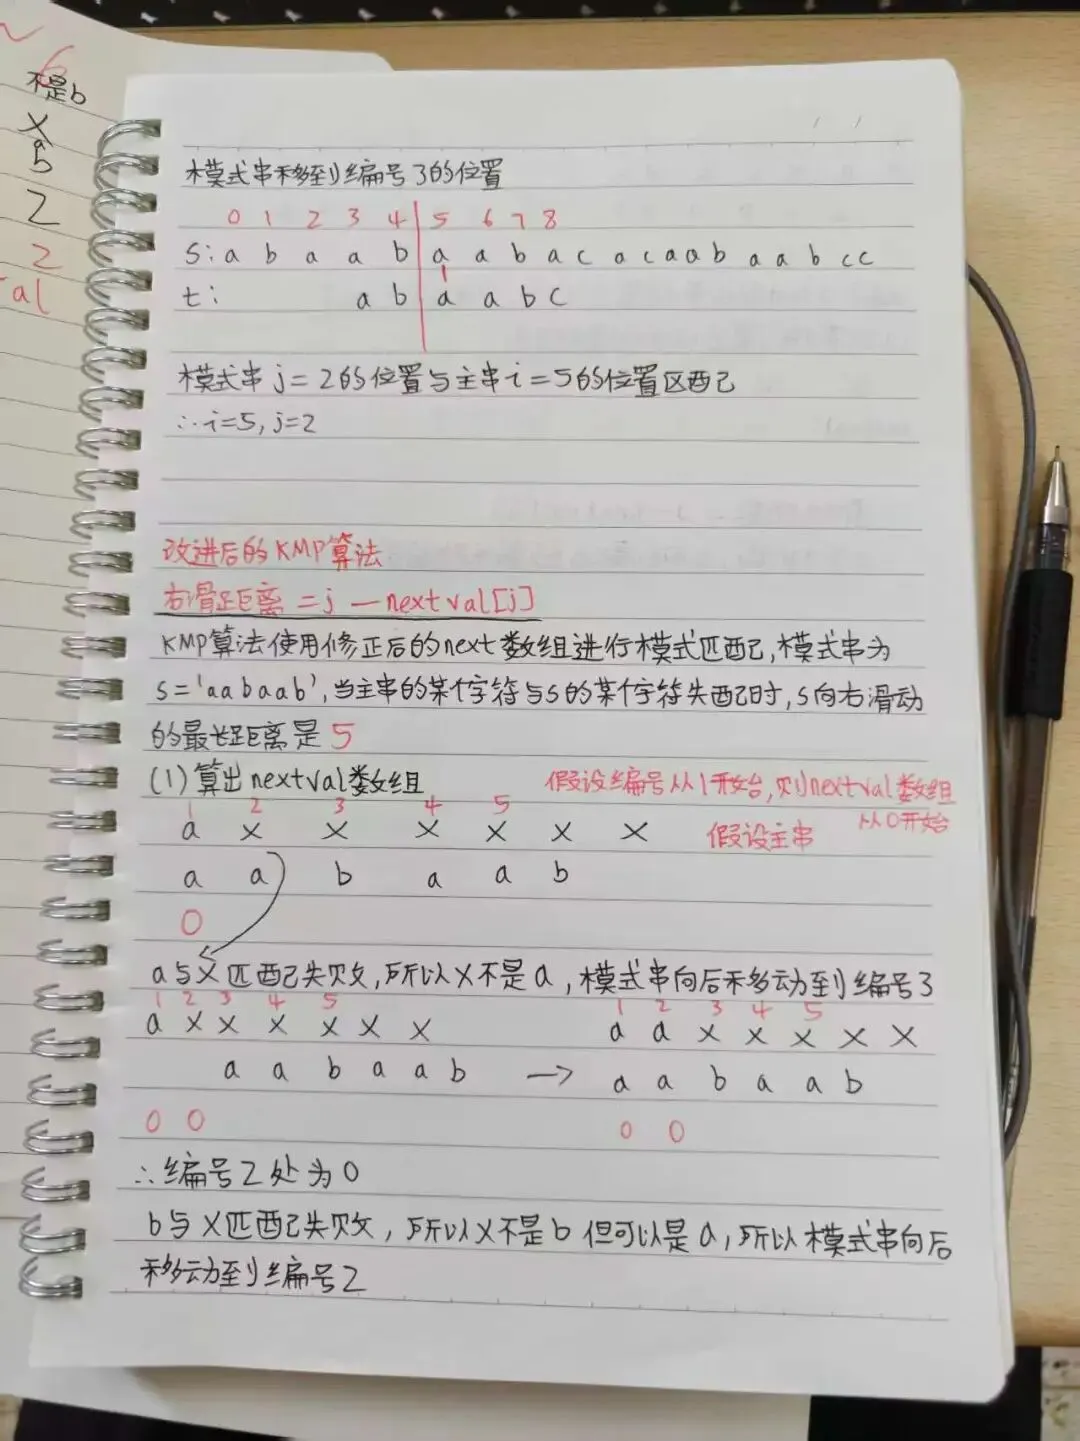 不是b
X
a
b
2
2
al
模式串移到编号3的位置
0 1 2 3 4 5 6 7 8
S: a b a a b a a b a c a c a a b a a b c c
t: a b a a b c
模式串j=2的位置与主串i=5的位置匹配
∴i=5,j=2
改进后的KMP算法
右滑距离=j—nextval[j]
KMP算法使用修正后的next数组进行模式匹配,模式串为
s='aabaab',当主串的某个字符与s的某个字符失配时,s向右滑动
的最长距离是5
(1)算出nextval数组 假设编号从1开始,则nextval数组
从0开始
1 2 3 4 5
a x x x x x x 假设主串
a a b a a b
0
a与x匹配失败,所以x不是a,模式串向后移动到编号3
1 2 3 4 5 1 2 3 4 5
a x x x x x x a a x x x x x
a a b a a b → a a b a a b
0 0 0 0
∴编号2处为0
b与x匹配失败,所以x不是b但可以是a,所以模式串向后
移动到编号2